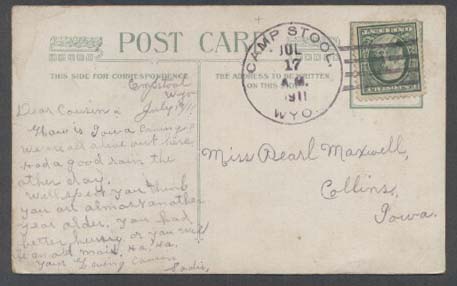 POST CARD
THIS SIDE FOR CORRESPONDENCE
THE ADDRESS TO BE WRITTEN
ON THIS SIDE
CAMP STOOL
JUL
17
A.M.
1911
WYO.
Campstool
Wyo
July
Dear Cousin
How is Iowa
we are all alive out here
had a good rain the
other day.
Well I spect you think
you are almost another
year older. You had
better hurry or you will
be an old maid. Ha, Ha.
Your Loving Cousin
Sadie,
Miss Pearl Maxwell,
Collins,
Iowa.